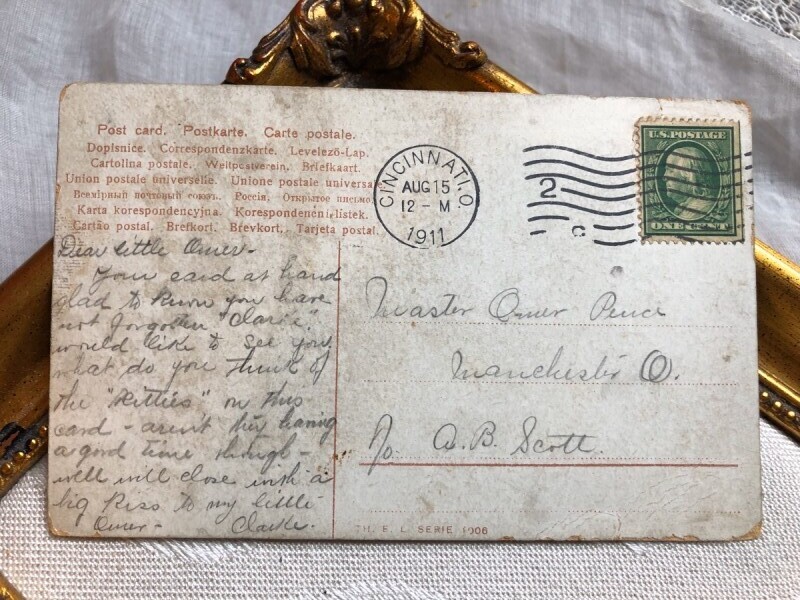 Post card. Postkarte. Carte postale.
Dopisnice. Correspondenzkarte. Levelező-Lap.
Cartolina postale. Weltpostverein. Briefkaart.
Union postale universelle. Unione postale universa
Всемірный почтовый союзъ. Россія. Открытое письмо
Karta korespondencyjna. Korespondenčni listek.
Cartão postal. Brefkort. Brevkort. Tarjeta postal.
CINCINNATI, O.
AUG 15
12 - M
1911
2
C
U.S. POSTAGE
ONE CENT
Dear little Omer-
Your card at hand
glad to know you have
not forgotten "Clarke".
would like to see you
what do you think of
the "Kitties" on this
card - aren't they having
a good time though -
well will close with a
big kiss to my little
Omer- Clarke.
Master Omer Pence
Manchester O.
℅ A. B. Scott.
TH. E. L. SERIE 1006